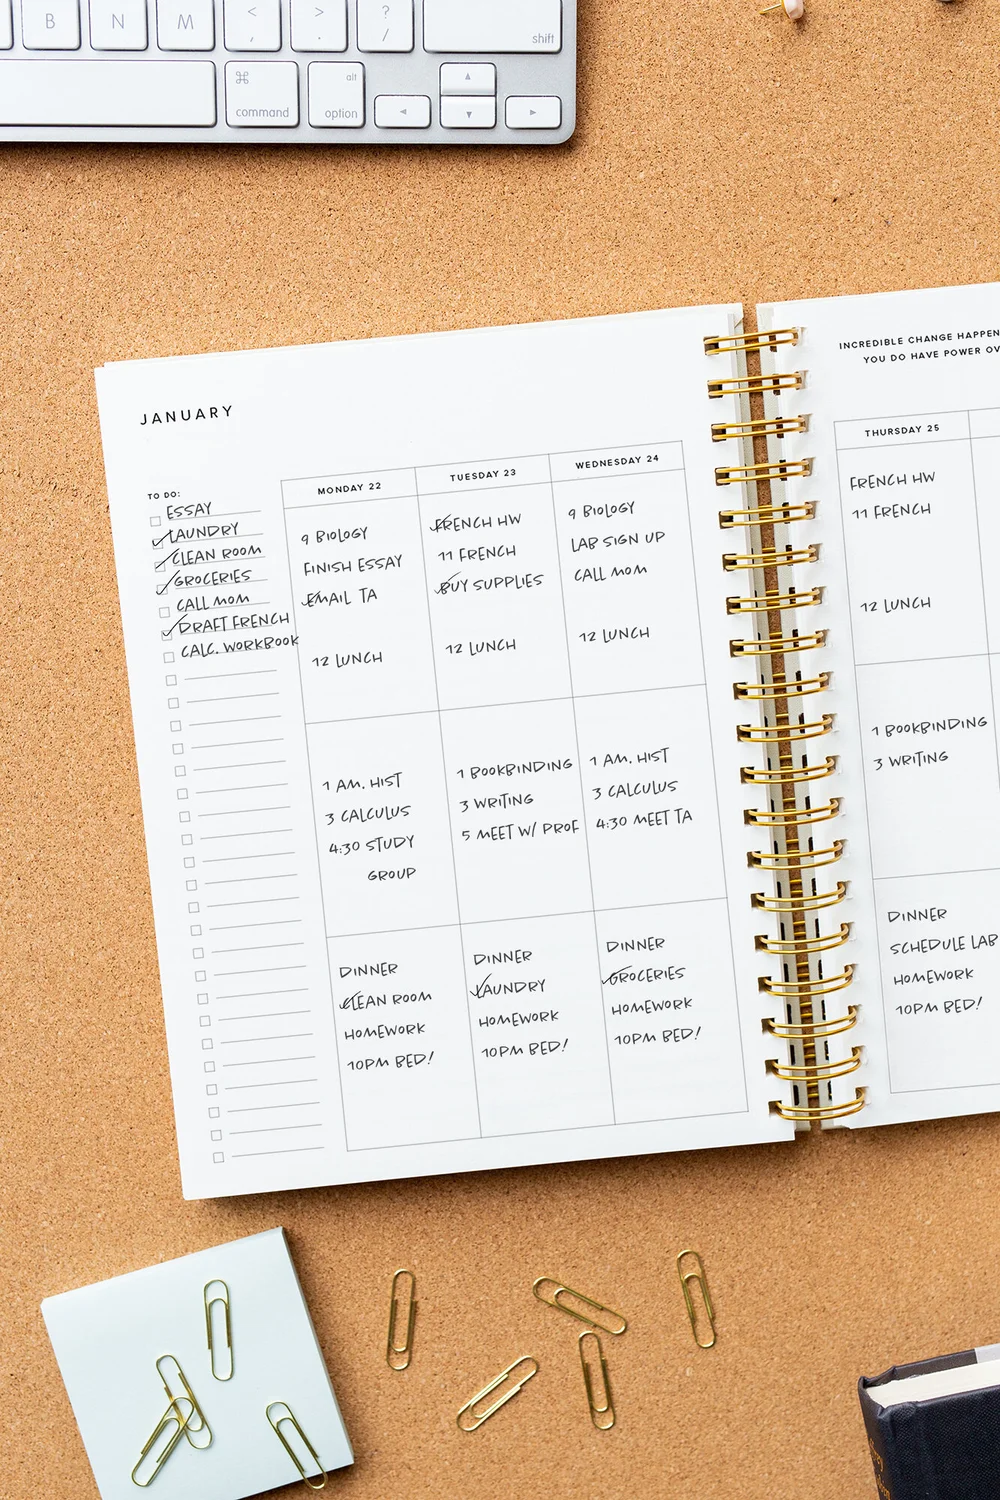 B
N
M
<
,
>
.
?
/
shift
⌘
command
alt
option
INCREDIBLE CHANGE HAPPEN
YOU DO HAVE POWER OV
JANUARY
TO DO:
ESSAY
LAUNDRY
CLEAN ROOM
GROCERIES
CALL MOM
DRAFT FRENCH
CALC. WORKBOOK
MONDAY 22
9 BIOLOGY
FINISH ESSAY
EMAIL TA
12 LUNCH
1 AM. HIST
3 CALCULUS
4:30 STUDY
GROUP
DINNER
CLEAN ROOM
HOMEWORK
10PM BED!
TUESDAY 23
FRENCH HW
11 FRENCH
BUY SUPPLIES
12 LUNCH
1 BOOKBINDING
3 WRITING
5 MEET W/ PROF
DINNER
LAUNDRY
HOMEWORK
10PM BED!
WEDNESDAY 24
9 BIOLOGY
LAB SIGN UP
CALL MOM
12 LUNCH
1 AM. HIST
3 CALCULUS
4:30 MEET TA
DINNER
GROCERIES
HOMEWORK
10PM BED!
THURSDAY 25
FRENCH HW
11 FRENCH
12 LUNCH
1 BOOKBINDING
3 WRITING
DINNER
SCHEDULE LAB
HOMEWORK
10PM BED!